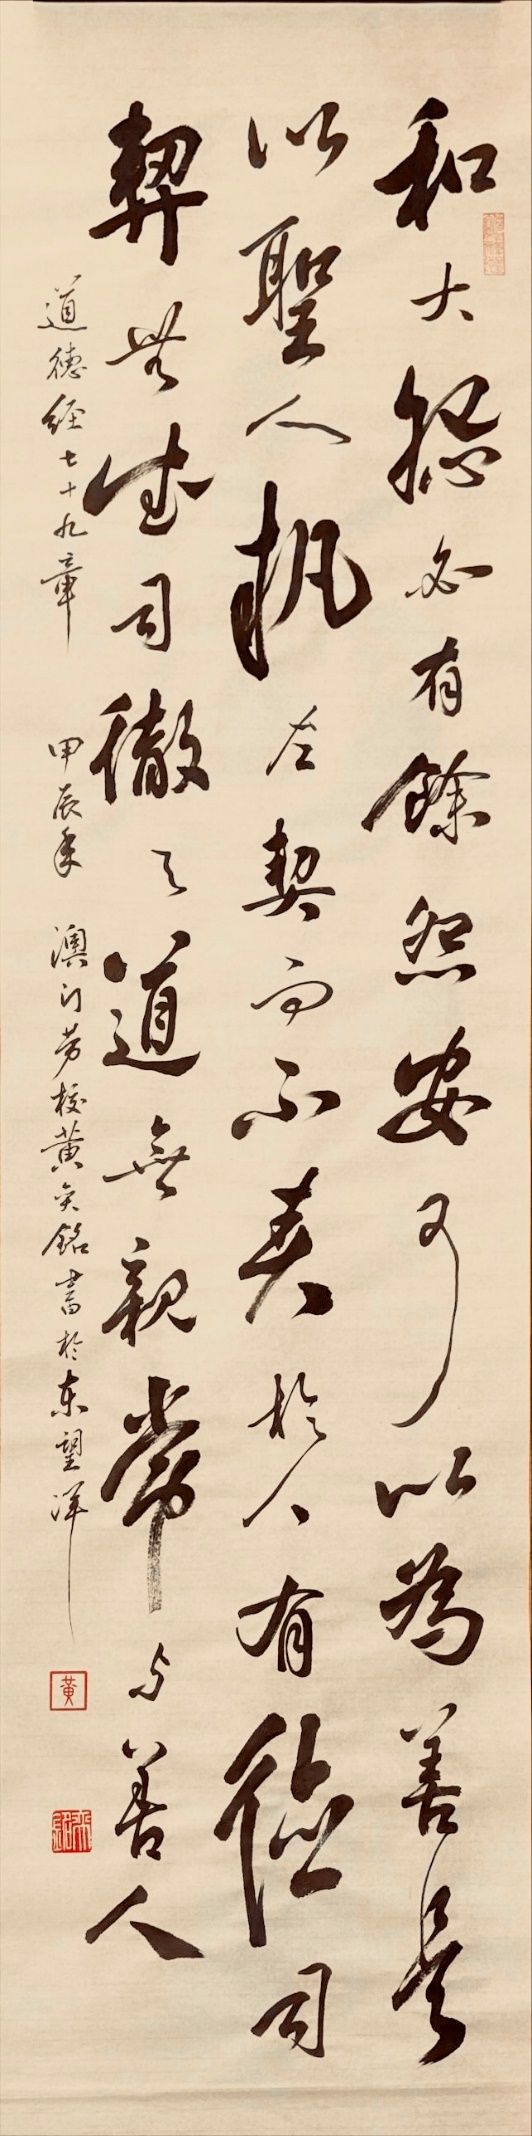 和大怨必有餘怨安可以為善是
以聖人執左契而不責於人有德司
契無德司徹天道無親常与善人
道德經七十九章 甲辰年 澳门劳校黄奕銘書於东望洋
黄